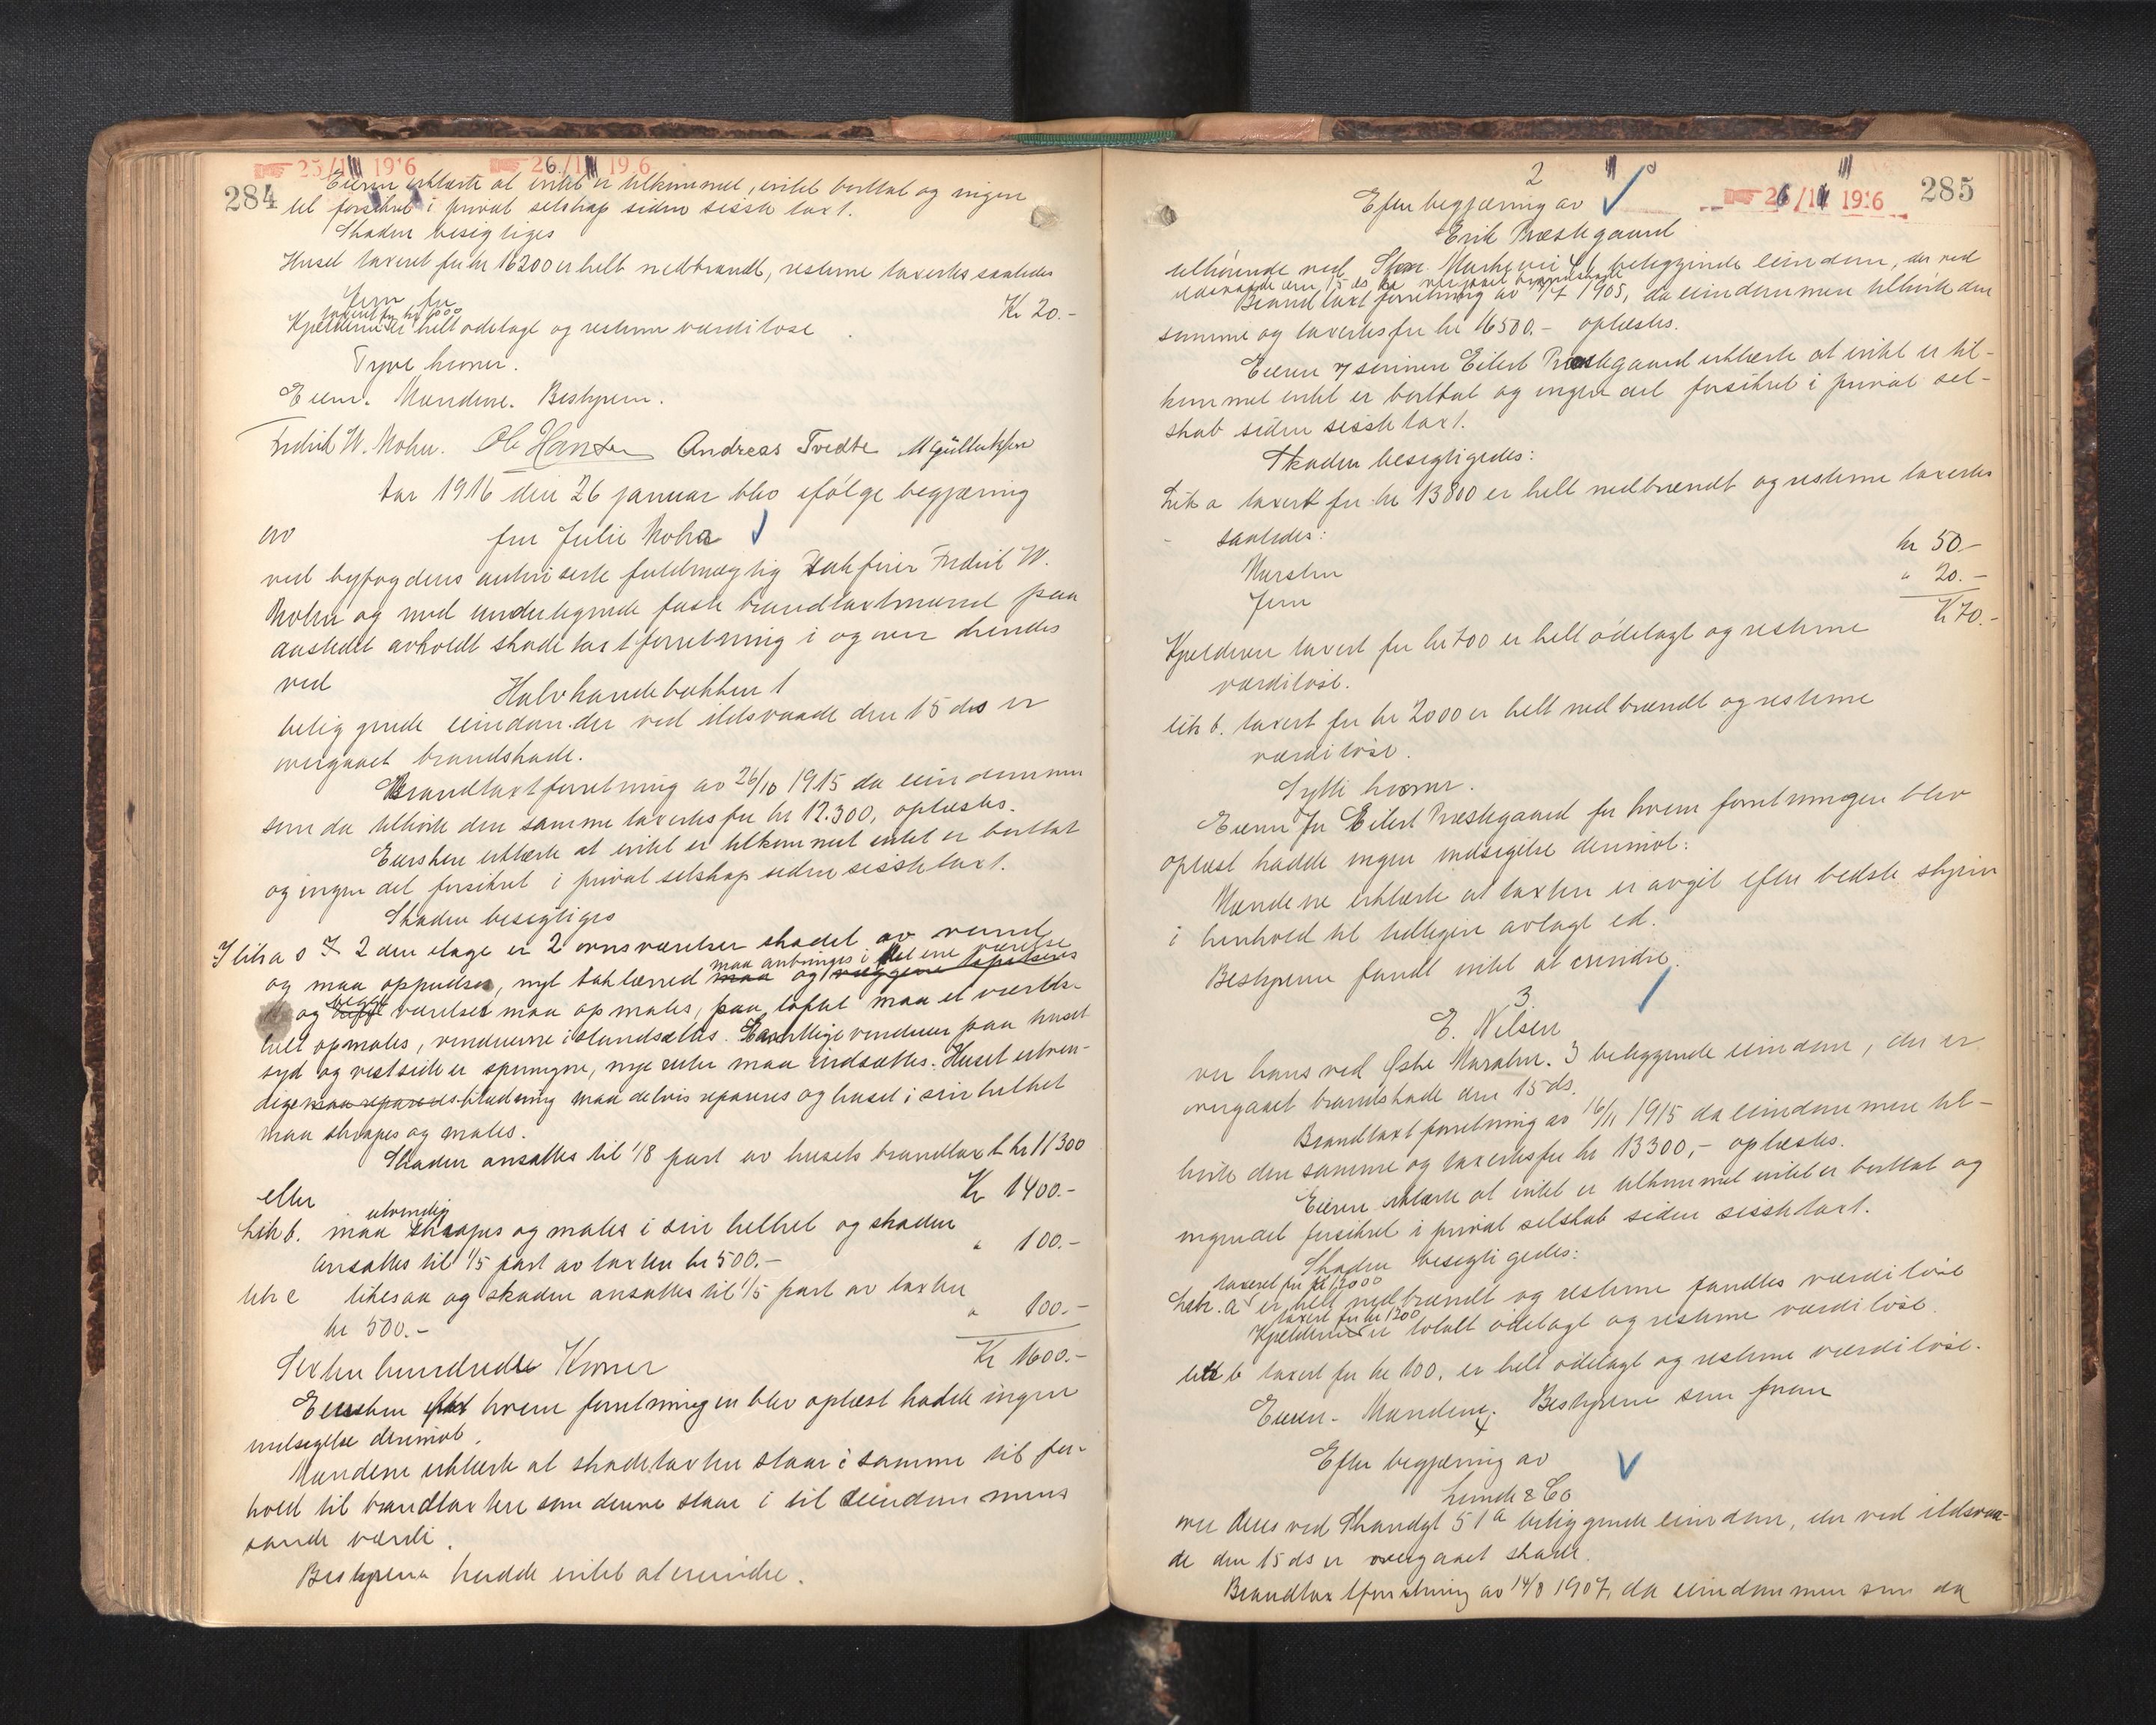 25/1 1916 26/1 1916
284
Eieren erklærte at intet er tilkommet, intet borttat og ingen
del forsikret i privat selskap siden sisste taxt.
Skaden besigtiges
Huset taxeret for kr 16200 er helt nedbrændt, resterne taxertes saaledes
Jern for Kr 20.-
taxeret for kr 1000
Kjelderen er helt ødelagt og resterne værdiløse
Tyve kroner.
Eieren. Mændene. Bestyreren.
Fredrik W. Mohn. Ole Hansen Andreas Tvedte M Gulluksen
Aar 1916 den 26 januar blev ifølge begjæring
av fru Julie Mohn
ved byfogdens autoriserte fuldmægtig sakfører Fredrik W.
Mohn og med undertegnede faste brandtaxtmænd paa
aastedet avholdt skadetaxtforretning i og over hendes
ved Halvkandebakken 1
beliggende eiendom der ved ildsvaade den 15 ds er
overgaaet brandskade.
Brandtaxtforretning av 26/10 1915 da eiendommen
som da tilhørte den samme taxertes for kr 12.300, oplæstes.
Eiersken erklærte at intet er tilkommet intet er borttat
og ingen del forsikret i privat selskap siden sisste taxt.
Skaden besigtiges
I litra a I 2den etage er 2 ovnsværelser skadet av vand
maa anbringes i det ene værelse
og maa oppudses, nyt taklærred maa og væggene tapetseres
begge
og værelser maa opmales, paa loftet maa et værelse
helt opmales, vinduerne istandsættes. Samtlige vinduer paa huset
syd og vestside er sprungne, nye ruter maa indsættes. Huset utven-
dige maa repareres klædning maa delvis repareres og huset i sin helhet
maa skrapes og males.
Skaden ansattes til 1/8 part av husets brandtaxt kr 11300
eller Kr 1400.-
utvendig
Litr b. maa skrapes og males i sin helhet og skaden
ansattes til 1/5 part av taxten kr 500.- " 100.-
litr c likesaa og skaden ansattes til 1/5 part av taxten
kr 500.- " 100.-
Sexten hundrede Kroner Kr 1600.-
Eiersken for hvem forretningen blev oplæst hadde ingen
indsigelse derimot.
Mændene erklærte at skadetaxten staar i samme til for-
hold til brandtaxten som denne staar i til eiendommens
sande værdi.
Bestyreren hadde intet at erindre.
2
26/1 1916
285
Efter begjæring av
Erik Præstegaard
tilhørende ved Stra. Markevei 4 beliggende eiendom, der ved
ildsvaade den 15 ds er overgaaet brandskade
Brandtaxtforretning av 7/7 1905, da eiendommen tilhørte den
samme og taxertes for kr 16500.- oplæstes.
Eieren v/ sønnen Eilert Præstegaard erklærte at intet er til-
kommet intet er borttat og ingen del forsikret i privat sel-
skab siden sisste taxt.
Skaden besigtigedes:
Litr a taxert for kr 13800 er helt nedbrændt og resterne taxertes
saaledes:
Mursten kr 50.-
Jern " 20.-
Kr 70.-
Kjelderen taxert for kr 700 er helt ødelagt og resterne
værdiløse.
litr b. taxert for kr 2000 er helt nedbrændt og resterne
værdiløse.
Sytti kroner.
Eieren for Eilert Præstegaard for hvem forretningen blev
oplæst hadde ingen indsigelse derimot.
Mændene erklærte at taxten er avgit efter bedste skjøn
i henhold til tidligere avlagt ed.
Bestyreren fandt intet at erindre.
3.
E. Nilsen
over hans ved Østre Muralm. 3 beliggende eiendom, der er
overgaaet brandskade den 15 ds.
Brandtaxtforretning av 16/11 1915 da eiendommen til-
hørte den samme og taxertes for kr 13300,- oplæstes.
Eieren erklærte at intet er tilkommet intet er borttat og
ingen del forsikret i privat selskab siden sisste taxt.
Skaden besigtigedes:
taxeret for kr 12000
Litr. a er helt nedbrændt og resterne fandtes værdiløse
taxert for kr 1200
Kjelderen er totalt ødelagt og resterne værdiløse.
litr b taxert for kr 100, er helt ødelagt og resterne værdiløse.
Eieren - Mændene. Bestyreren som foran
4
Efter begjæring av
Lunde & Co
over deres ved Strandgt 51a beliggende eiendom, der ved ildsvaa-
de den 15 ds er overgaaet skade.
Brandtaxtforretning av 14/8 1907, da eiendommen som da